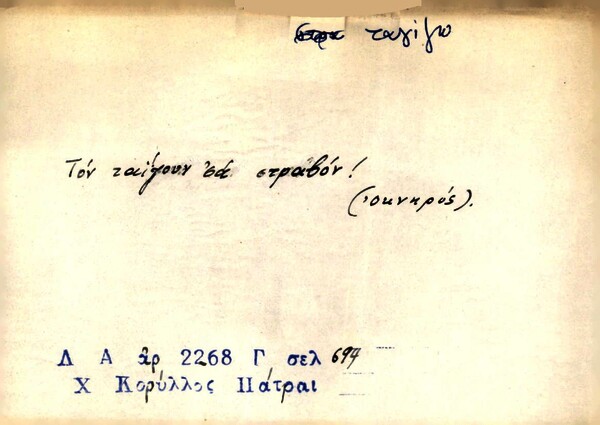 ταγίζω
Τόν ταΐζουν 'σά στραβόν!
('οκνηρός).
Λ Α ἀρ 2268 Γ σελ 694
Χ Κορύλλος Πάτραι